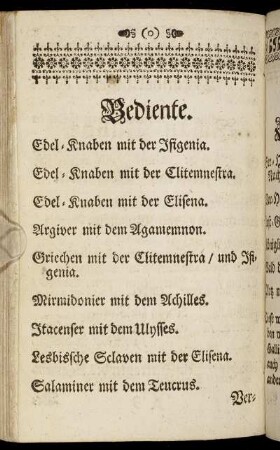 (o)
Bediente.
Edel-Knaben mit der Ifigenia.
Edel-Knaben mit der Clitemnestra.
Edel-Knaben mit der Elisena.
Argiver mit dem Agamemnon.
Griechen mit der Clitemnestra / und Ifi-
genia.
Mirmidonier mit dem Achilles.
Itacenser mit dem Ulysses.
Lesbische Sclaven mit der Elisena.
Salaminer mit dem Teucrus.
Ver-